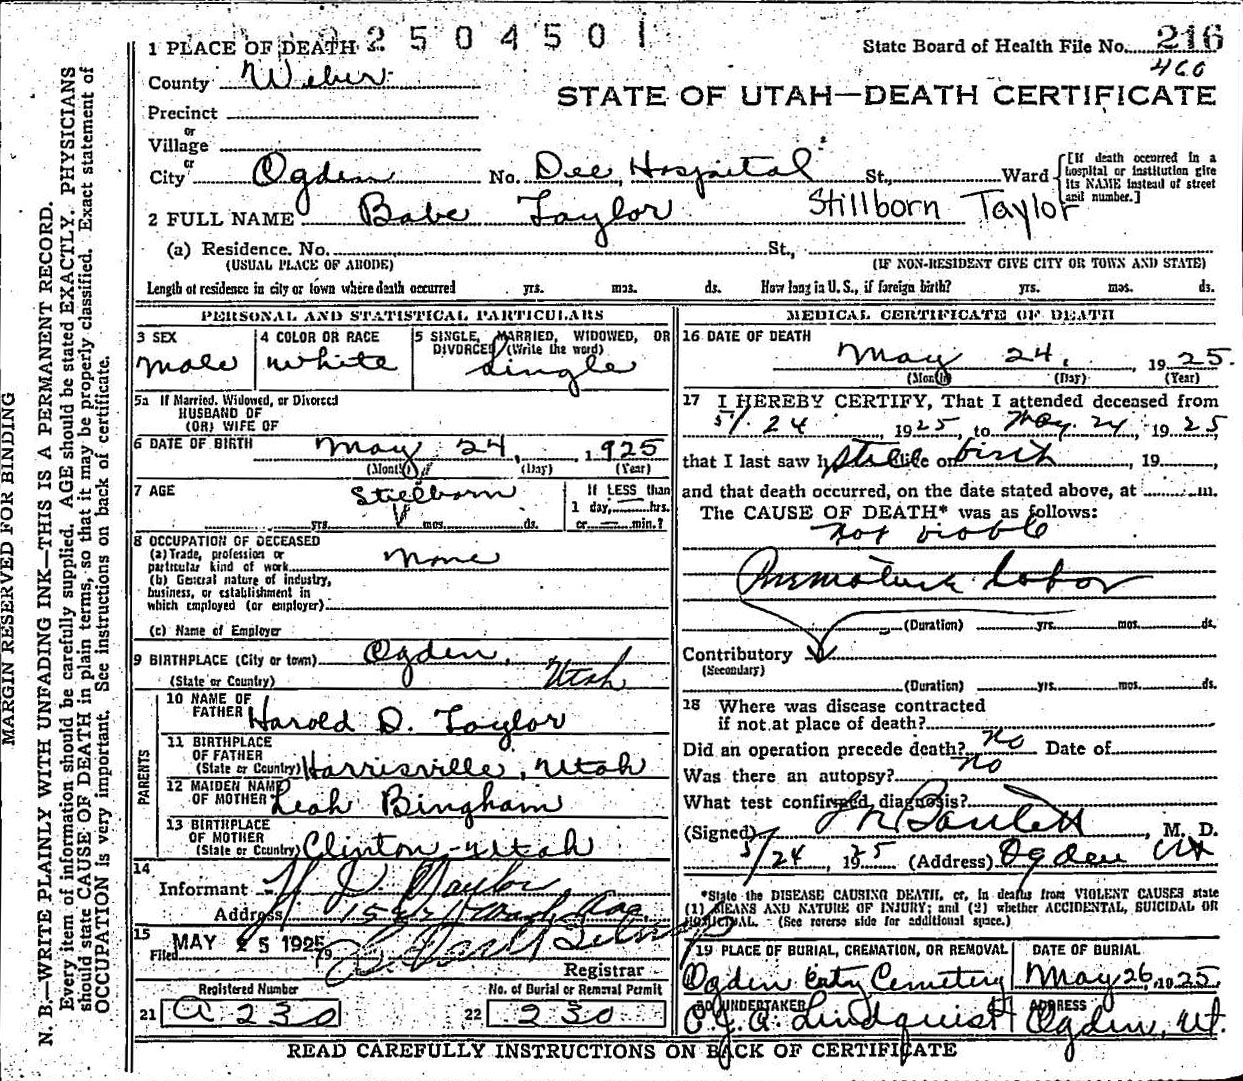 2504501
State Board of Health File No. 216
460
1 PLACE OF DEATH
County Weber
STATE OF UTAH—DEATH CERTIFICATE
Precinct
or
Village
or
City Ogden No. Dee Hospital St., Ward
[If death occurred in a
hospital or institution give
its NAME instead of street
and number.]
2 FULL NAME Babe Taylor Stillborn Taylor
(a) Residence. No. St.,
(USUAL PLACE OF ABODE) (IF NON-RESIDENT GIVE CITY OR TOWN AND STATE)
Length of residence in city or town where death occurred yrs. mos. ds. How long in U. S., if foreign birth? yrs. mos. ds.
PERSONAL AND STATISTICAL PARTICULARS
3 SEX
Male
4 COLOR OR RACE
White
5 SINGLE, MARRIED, WIDOWED, OR
DIVORCED (Write the word)
Single
5a If Married, Widowed, or Divorced
HUSBAND OF
(OR) WIFE OF
6 DATE OF BIRTH May 24, 1925
(Month) (Day) (Year)
7 AGE Stillborn
yrs. mos. ds.
If LESS than
1 day, hrs.
or min.?
8 OCCUPATION OF DECEASED
(a) Trade, profession or
particular kind of work None
(b) General nature of industry,
business, or establishment in
which employed (or employer)
(c) Name of Employer
9 BIRTHPLACE (City or town) Ogden,
(State or Country) Utah
PARENTS
10 NAME OF
FATHER Harold D. Taylor
11 BIRTHPLACE
OF FATHER
(State or Country) Harrisville, Utah
12 MAIDEN NAME
OF MOTHER Leah Bingham
13 BIRTHPLACE
OF MOTHER
(State or Country) Clinton - Utah
14
Informant Taylor
Address
15
Filed MAY 25 1925 19
Registrar
Registered Number
21 A 230
No. of Burial or Removal Permit
22 230
MEDICAL CERTIFICATE OF DEATH
16 DATE OF DEATH
May 24, 1925.
(Month) (Day) (Year)
17 I HEREBY CERTIFY, That I attended deceased from
5/24, 1925, to May 24, 1925,
that I last saw h still birth alive on , 19
and that death occurred, on the date stated above, at m.
The CAUSE OF DEATH* was as follows:
not viable
Premature Labor
(Duration) yrs. mos. ds.
Contributory
(Secondary)
(Duration) yrs. mos. ds.
18 Where was disease contracted
if not at place of death?
Did an operation precede death? No Date of
Was there an autopsy? No
What test confirmed diagnosis?
(Signed) Bartlett, M. D.
5/24, 1925 (Address) Ogden Ut
*State the DISEASE CAUSING DEATH, or, in deaths from VIOLENT CAUSES state
(1) MEANS AND NATURE OF INJURY; and (2) whether ACCIDENTAL, SUICIDAL OR
HOMICIDAL. (See reverse side for additional space.)
19 PLACE OF BURIAL, CREMATION, OR REMOVAL
Ogden City Cemetery
DATE OF BURIAL
May 26, 1925.
20 UNDERTAKER
Lindquist
ADDRESS
Ogden, Ut.
READ CAREFULLY INSTRUCTIONS ON BACK OF CERTIFICATE
MARGIN RESERVED FOR BINDING
N. B.—WRITE PLAINLY WITH UNFADING INK—THIS IS A PERMANENT RECORD.
Every item of information should be carefully supplied. AGE should be stated EXACTLY. PHYSICIANS
should state CAUSE OF DEATH in plain terms, so that it may be properly classified. Exact statement of
OCCUPATION is very important. See instructions on back of certificate.